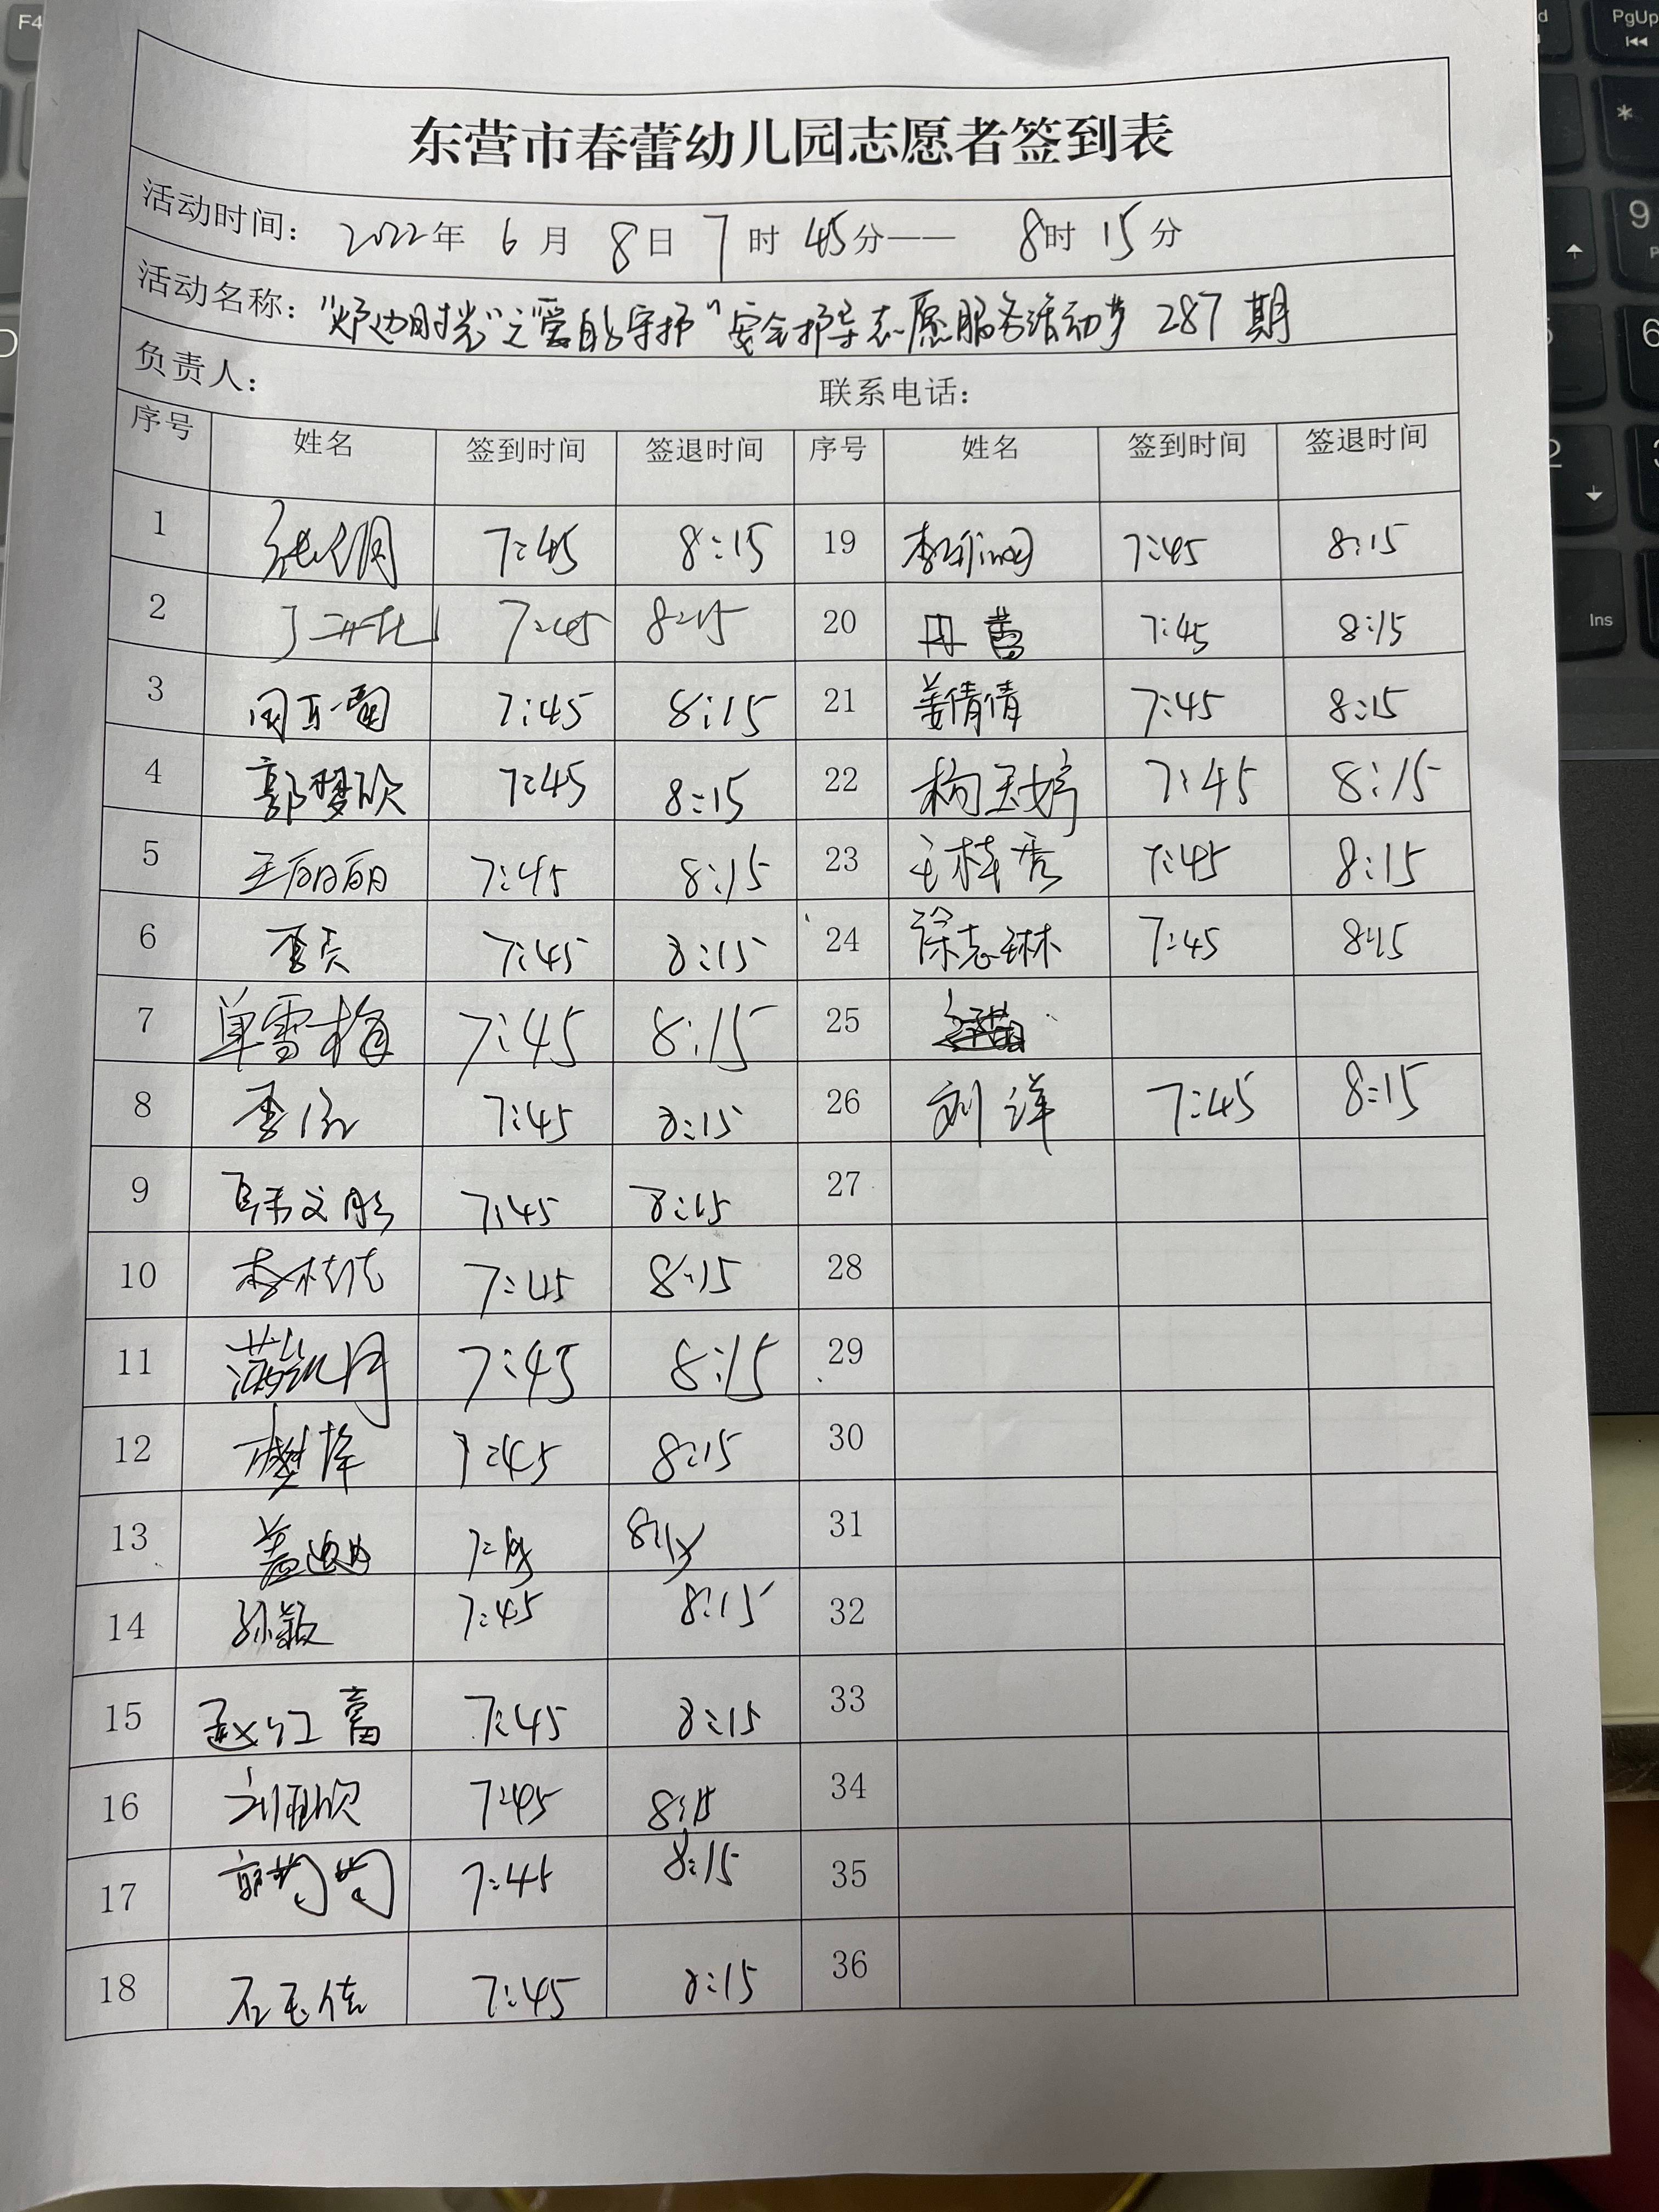 东营市春蕾幼儿园志愿者签到表
活动时间: 2022年 6月 8日 7时 45分—— 8时 15分
活动名称: “炉边时光”之“爱的守护”安全护导志愿服务活动第 287 期
负责人: 联系电话:
序号 姓名 签到时间 签退时间 序号 姓名 签到时间 签退时间
1 7:45 8:15 19 7:45 8:15
2 7:45 8:15 20 7:45 8:15
3 7:45 8:15 21 姜倩倩 7:45 8:15
4 郭梦欣 7:45 8:15 22 7:45 8:15
5 王丽丽 7:45 8:15 23 王桂秀 7:45 8:15
6 7:45 8:15 24 徐志琳 7:45 8:15
7 单雪梅 7:45 8:15 25
8 7:45 8:15 26 刘洋 7:45 8:15
9 韩文彤 7:45 8:15 27
10 7:45 8:15 28
11 满凯月 7:45 8:15 29
12 7:45 8:15 30
13 7:45 8:15 31
14 孙敏 7:45 8:15 32
15 赵红富 7:45 8:15 33
16 7:45 8:15 34
17 郭芍芍 7:45 8:15 35
18 石玉倩 7:45 8:15 36
F4
PgUp
*
9
6
2
Ins